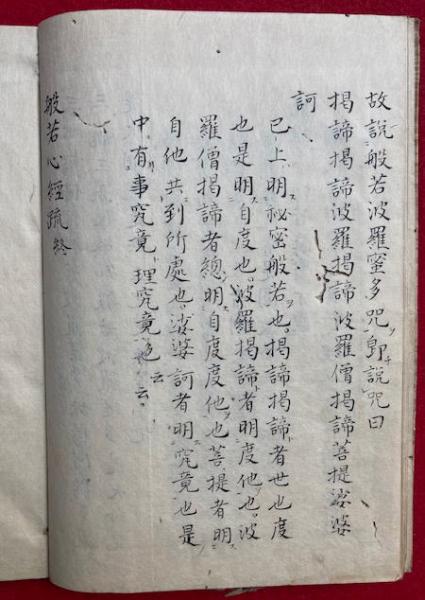 故說般若波羅蜜多咒卽說咒曰
揭諦揭諦波羅揭諦波羅僧揭諦菩提娑婆
訶
已上明秘密般若也揭諦揭諦者世也度
也是明自度也波羅揭諦者明度他也波
羅僧揭諦者總明自度度他也菩提者明
自他共到所處也娑婆訶者明究竟也是
中有事究竟理究竟也云云
般若心經疏終